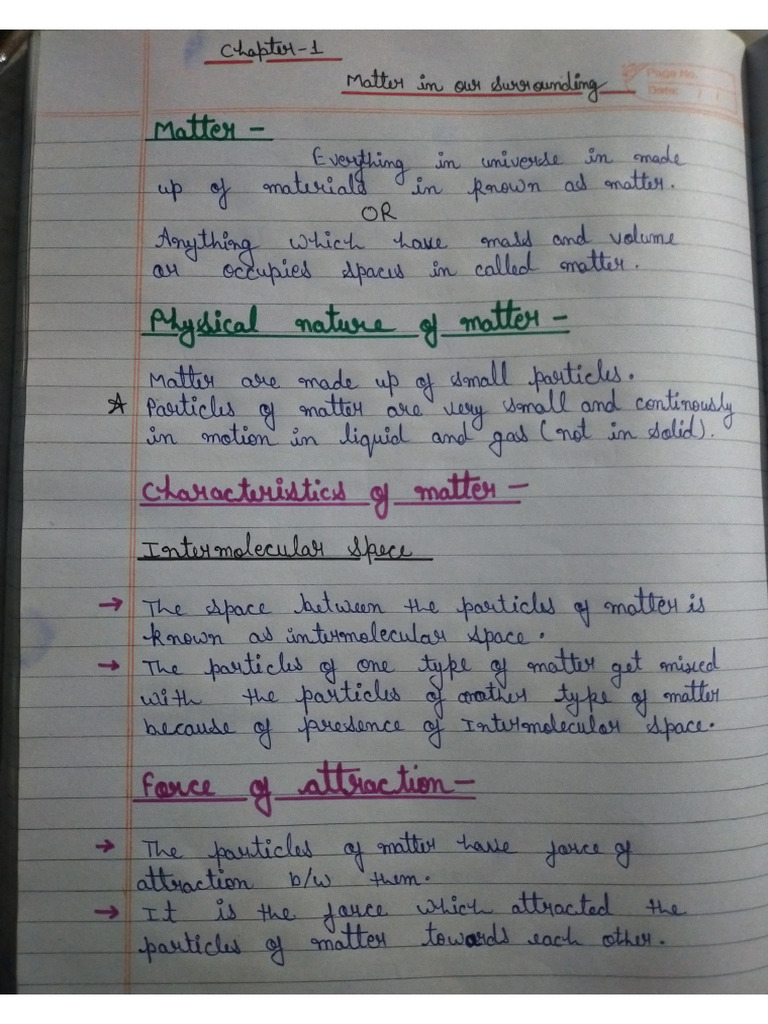 Chapter-1
Matter in our surrounding
Page No.
Date: / /
Matter -
Everything in universe in made
up of materials in known as matter.
OR
Anything which have mass and volume
or occupies spaces in called matter.
Physical nature of matter -
Matter are made up of small particles.
☆ Particles of matter are very small and continously
in motion in liquid and gas (not in solid).
Characteristics of matter -
Intermolecular Spece
→ The space between the particles of matter is
known as intermolecular space.
→ The particles of one type of matter get mixed
with the particles of another type of matter
because of presence of Intermolecular space.
Force of attraction -
→ The particles of matter have force of
attraction b/w them.
→ It is the force which attracted the
particles of matter towards each other.